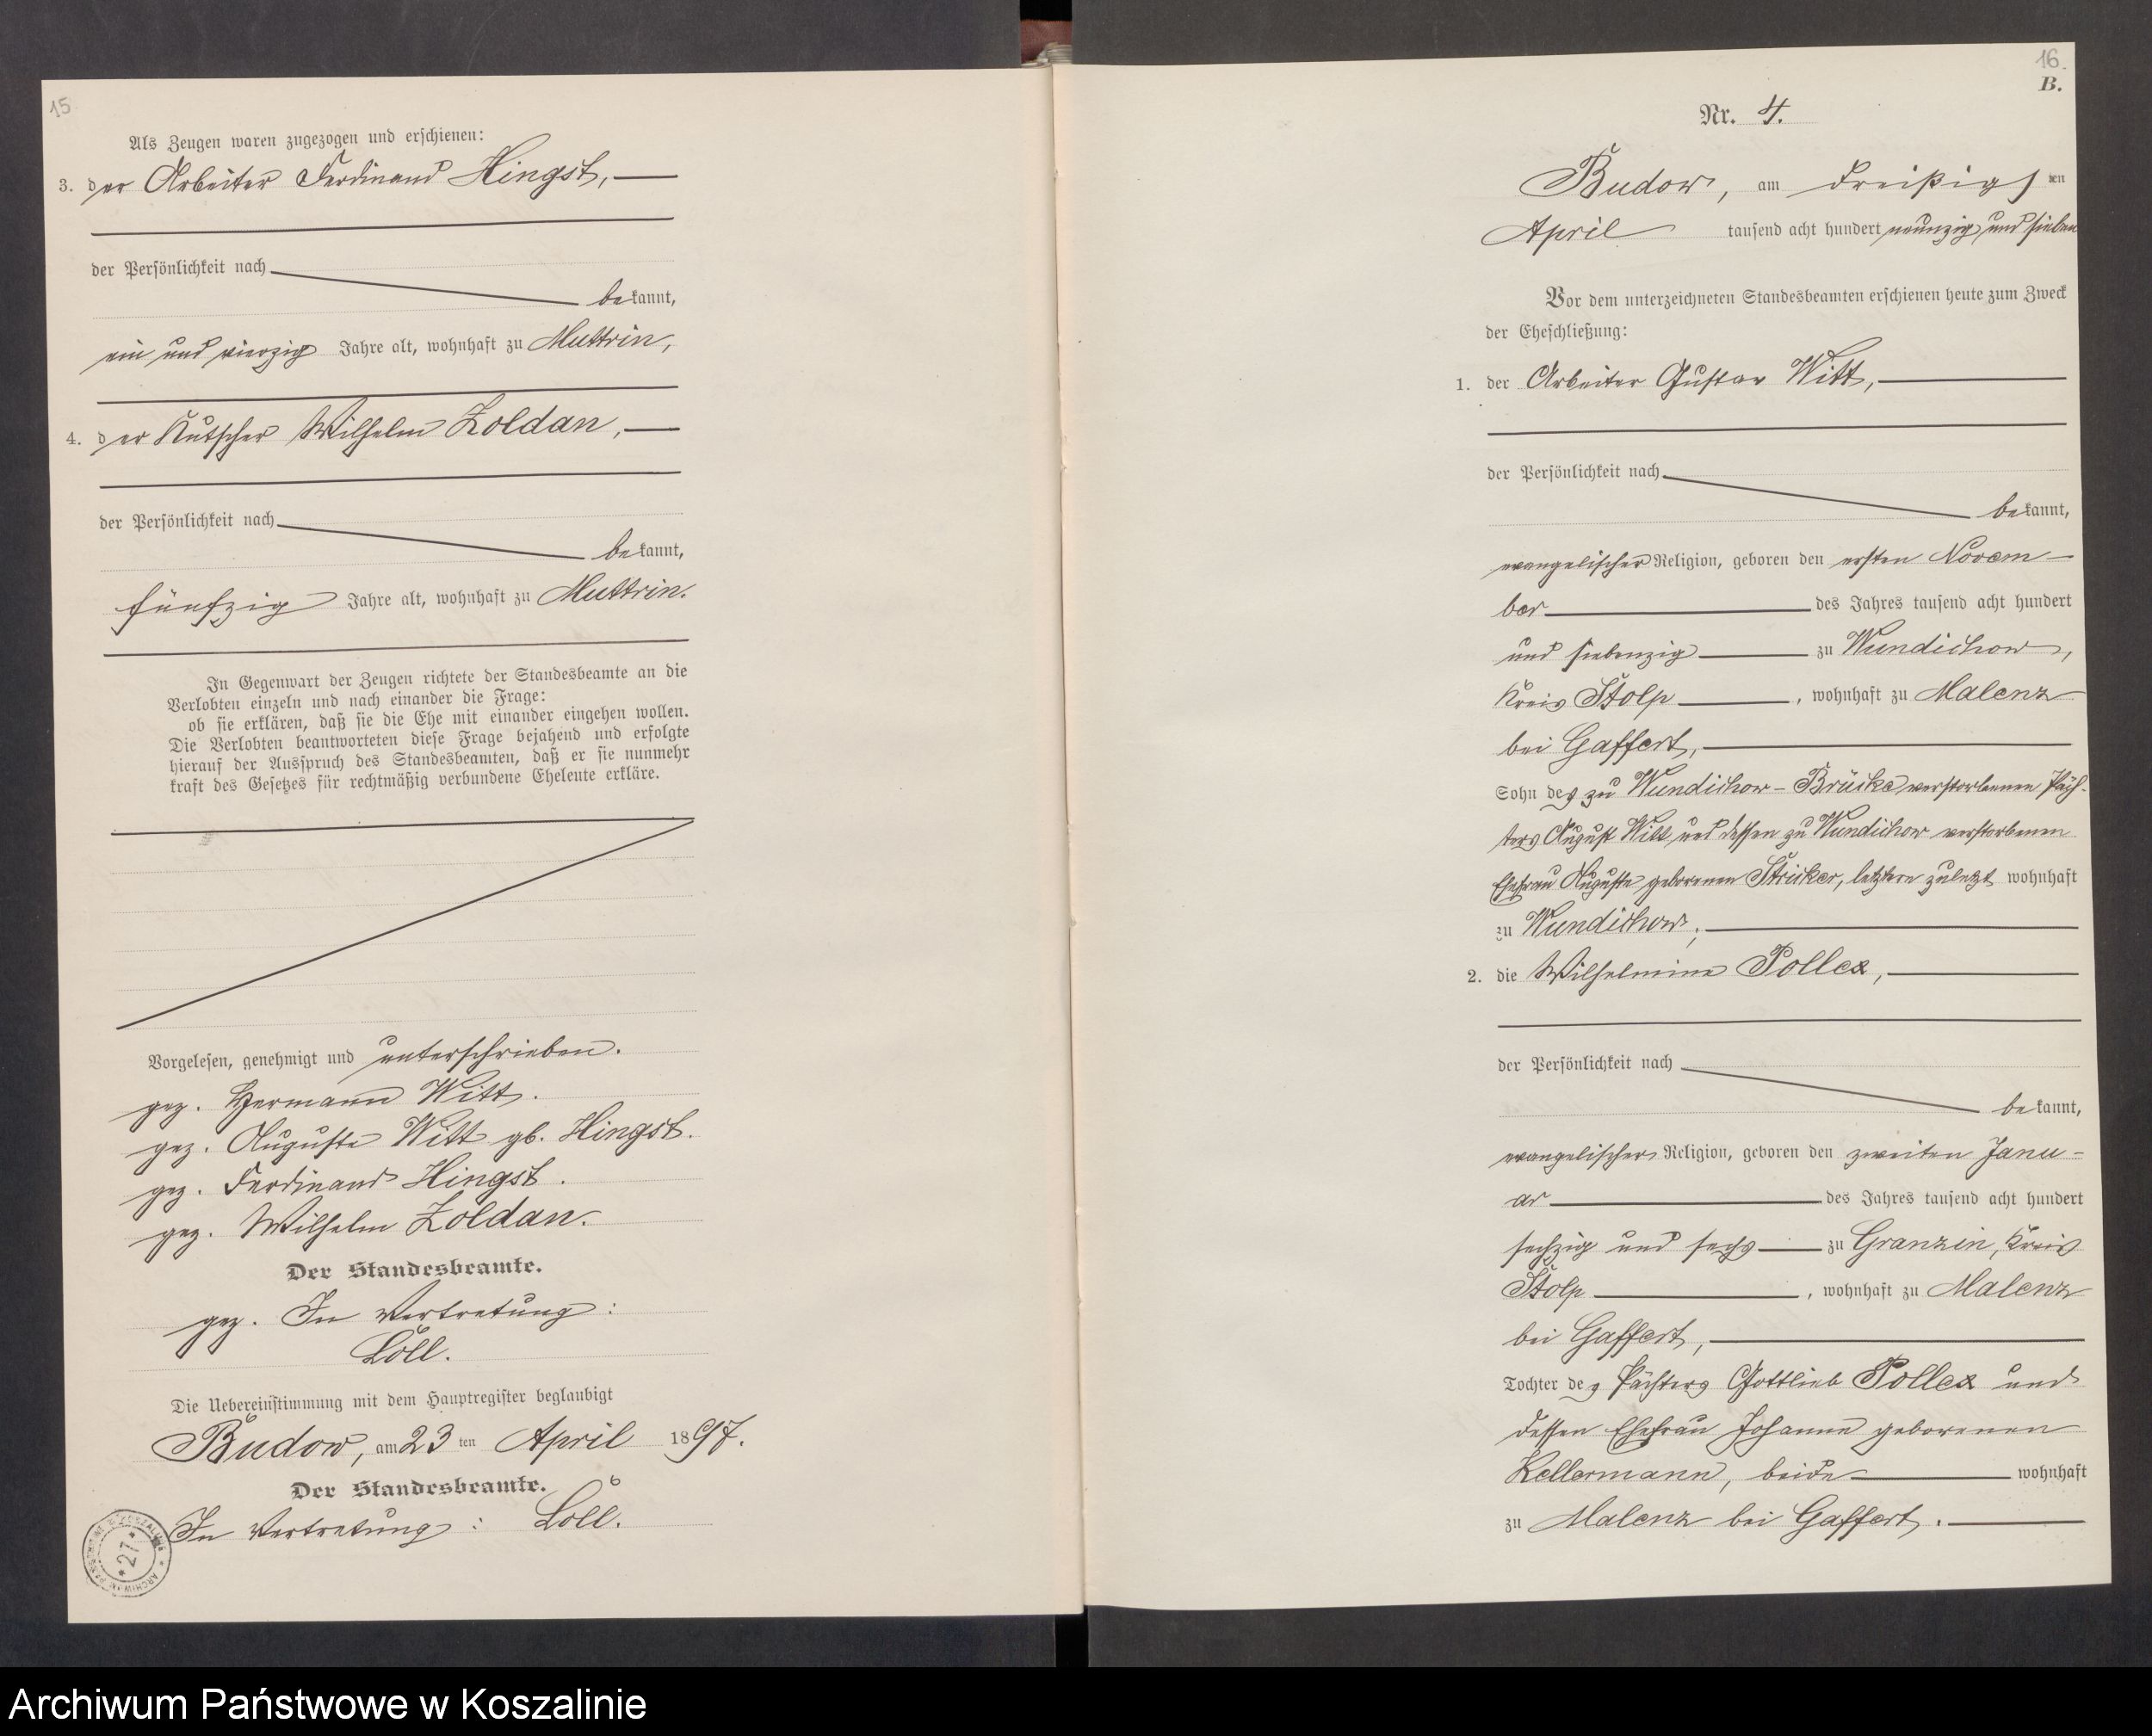 15
Als Zeugen waren zugezogen und erschienen:
3. der Arbeiter Ferdinand Hingst,
der Persönlichkeit nach
bekannt,
ein und vierzig Jahre alt, wohnhaft zu Muttrin,
4. der Kutscher Wilhelm Zoldan,
der Persönlichkeit nach
bekannt,
fünfzig Jahre alt, wohnhaft zu Muttrin.
In Gegenwart der Zeugen richtete der Standesbeamte an die
Verlobten einzeln und nach einander die Frage:
ob sie erklären, daß sie die Ehe mit einander eingehen wollen.
Die Verlobten beantworteten diese Frage bejahend und erfolgte
hierauf der Ausspruch des Standesbeamten, daß er sie nunmehr
kraft des Gesetzes für rechtmäßig verbundene Eheleute erkläre.
Vorgelesen, genehmigt und unterschrieben.
gez. Hermann Witt.
gez. Auguste Witt gb. Hingst.
gez. Ferdinand Hingst.
gez. Wilhelm Zoldan.
Der Standesbeamte.
gez. In Vertretung:
Löll.
Die Uebereinstimmung mit dem Hauptregister beglaubigt
Budow, am 23 ten April 1897.
Der Standesbeamte.
In Vertretung: Löll.
* 27 *
16.
B.
Nr. 4.
Budow, am dreißigsten
April tausend acht hundert neunzig und sieben
Vor dem unterzeichneten Standesbeamten erschienen heute zum Zweck
der Eheschließung:
1. der Arbeiter Gustav Witt,
der Persönlichkeit nach
bekannt,
evangelischer Religion, geboren den ersten Novem-
ber des Jahres tausend acht hundert
und siebenzig zu Wundichow,
Kreis Stolp, wohnhaft zu Malenz
bei Gaffert,
Sohn des zu Wundichow-Brücke verstorbenen Päch-
ters August Witt und dessen zu Wundichow verstorbenen
Ehefrau Auguste geborenen Stricker, letztere zuletzt wohnhaft
zu Wundichow;
2. die Wilhelmine Pollex,
der Persönlichkeit nach
bekannt,
evangelischer Religion, geboren den zweiten Janu-
ar des Jahres tausend acht hundert
sechzig und sechs zu Granzin, Kreis
Stolp, wohnhaft zu Malenz
bei Gaffert,
Tochter des Pächters Gottlieb Pollex und
dessen Ehefrau Johanne geborenen
Kellermann, beide wohnhaft
zu Malenz bei Gaffert.
Archiwum Państwowe w Koszalinie